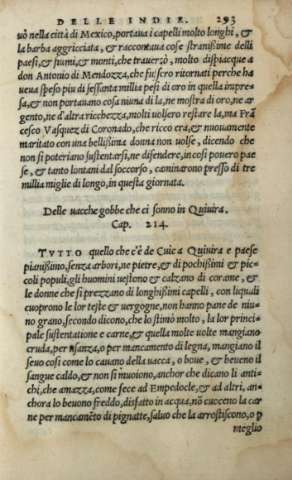 DELLE INDIE. 293
uò nella città di Mexico, portaua i capelli molto longhi, &
la barba aggricciata, & raccontaua cose stranissime delli
paesi, & fiumi, & monti, che trauerzò, molto dispiacque a
don Antonio di Mendozza, che fussero ritornati perche ha
ueua speso piu di sessanta millia pesi di oro in quella impre-
sa, & non portauano cosa niuna di la, ne mostra di oro, ne ar
gento, ne d'altra ricchezza, molti uolsero restare la, ma Frã
cesco Vasquez di Coronado, che ricco era, & nuouamente
maritato con una bellissima donna non uolse, dicendo che
non si poteriano sustentarsi, ne difendere, in cosi pouero pae
se, & tanto lontani dal soccorso, caminarono presso di tre
millia miglie di longo, in questa giornata.
Delle uacche gobbe che ci sonno in Quiuira.
Cap. 214.
TVTTO quello che c'è de Cuic a Quiuira e paese
pianissimo, senza arbori, ne pietre, & di pochissimi & pic-
coli populi, gli huomini uestono & calzano di corame, &
le donne che si prezzano di longhissimi capelli, con liquali
cuoprono le lor teste & uergogne, non hanno pane de niu-
no grano, secondo dicono, che lo stimo molto, la lor princi-
pale sustentatione e carne, & quella molte uolte mangiano
cruda, per usanza, o per mancamento di legna, mangiano il
seuo cosi come lo cauano della uacca, o boue, & beueno il
sangue caldo, & non si muoiono, anchor che dicano li anti-
chi, che amazza, come fece ad Empedocle, & ad altri, an-
chora lo beuono freddo, disfatto in acqua, nõ cuoceno la car
ne per mancamẽto di pignatte, saluo che la arrostiscono, o p
meglio